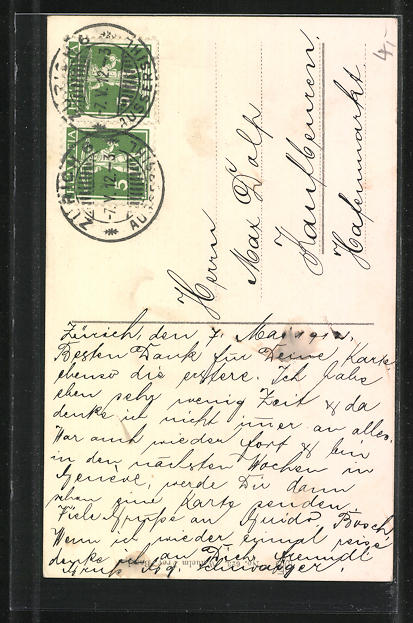 HELVETIA
5
ZÜRICH 9
-7.V.12.-3
AUSSERSIHL
ZÜRICH 9
-7.V.12.-3
AUSSERSIHL
4,-
Herrn
Max Dolp
Kaufbeuren.
Hafenmarkt
Zürich, den 7. Mai 1912.
Besten Dank für Deine Karte
ebenso die erstere. Ich habe
eben sehr wenig Zeit & da
denke ich nicht immer an alles.
War auch wieder fort & bin
in den nächsten Wochen in
Genève, werde Dir dann
schon eine Karte senden.
Viele Grüße an Guido, Bosch
Wenn ich wieder einmal reise
denke ich an Dich. Freundl
Gruß